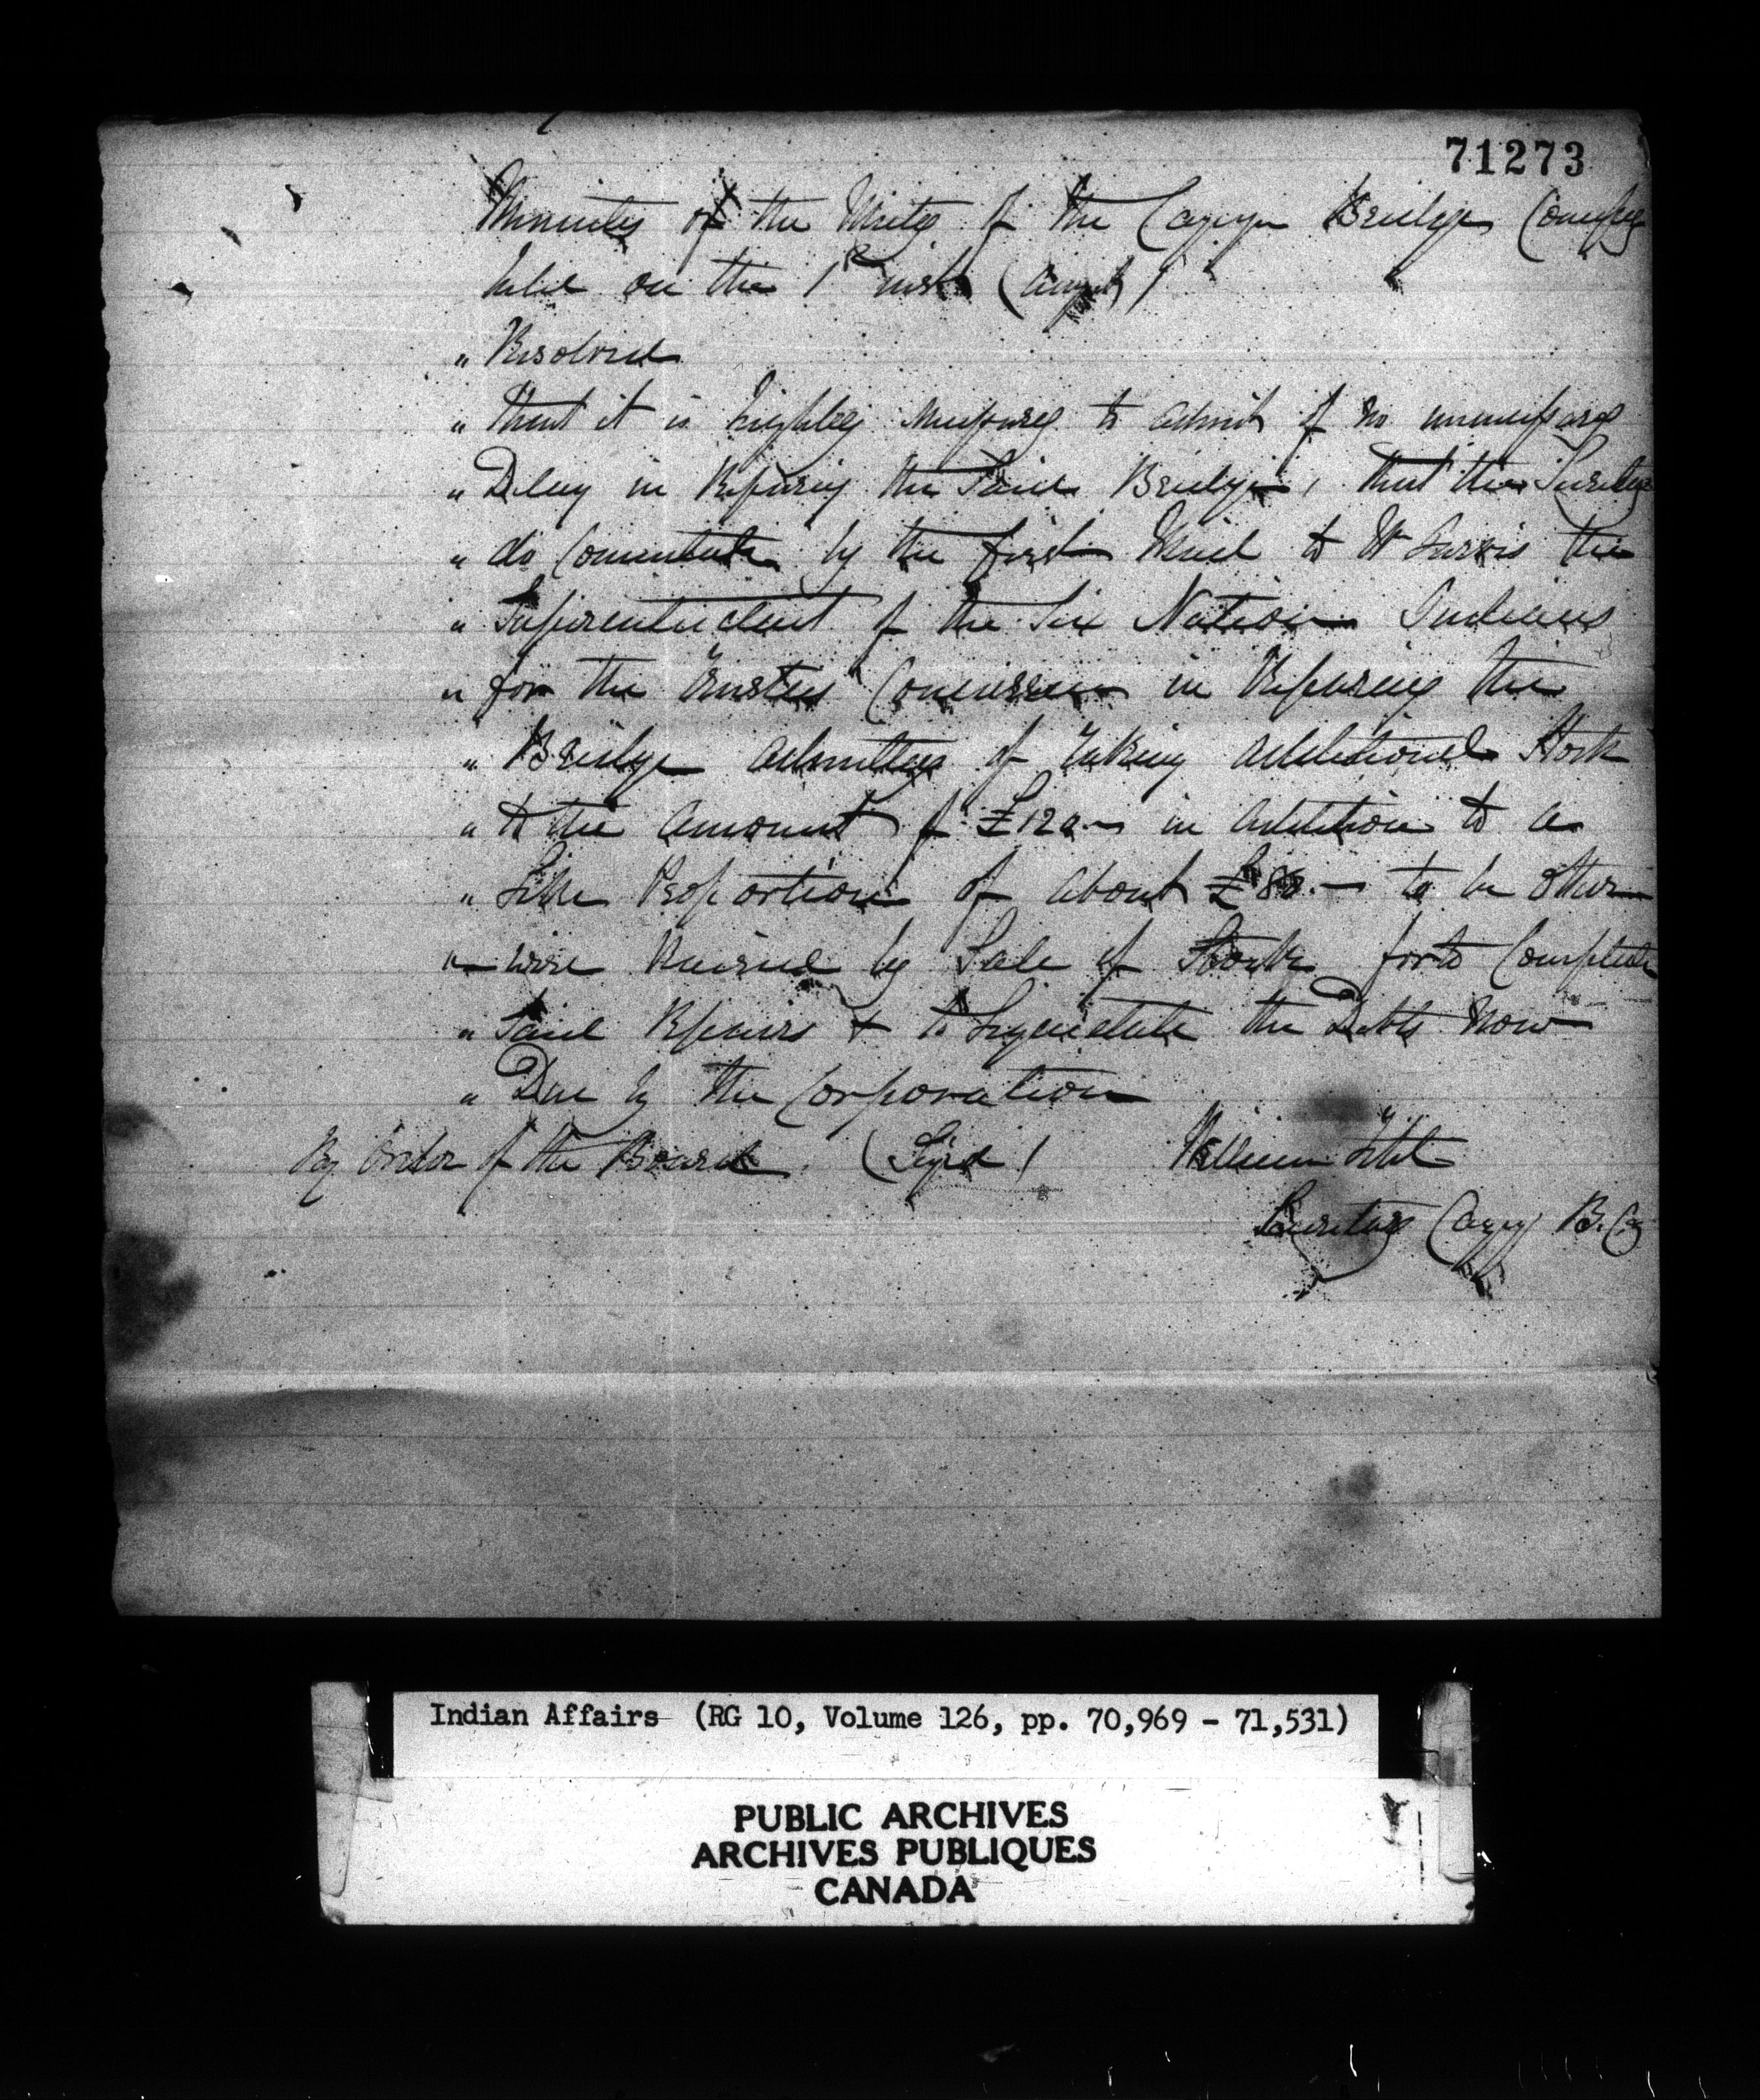 71273
Minutes of the Meetg of the Cayuga Bridge Compy
held on the 1st inst (August)
" Resolved
" that it is highly necessary to admit of no unnecessary
" Delay in Repairing the Said Bridge, that the Secretary
" do by the first Mail to Mr Jarvis the
" Superintendent of the Six Nation Indians
" for the Trustees Concurrence in Repairing the
" Bridge admitting of taking additional Stock
" to the amount of £120.— in addition to a
" Like Proportion of about £80.— to be other
" wise Raised by Sale of Stock for to Complete
" Said Repairs & to Liquidate the Debts now
" Due by the Corporation
By Order of the Board. (Signd) William
Secretary Cayg B. Cy
Indian Affairs (RG 10, Volume 126, pp. 70,969 - 71,531)
PUBLIC ARCHIVES
ARCHIVES PUBLIQUES
CANADA